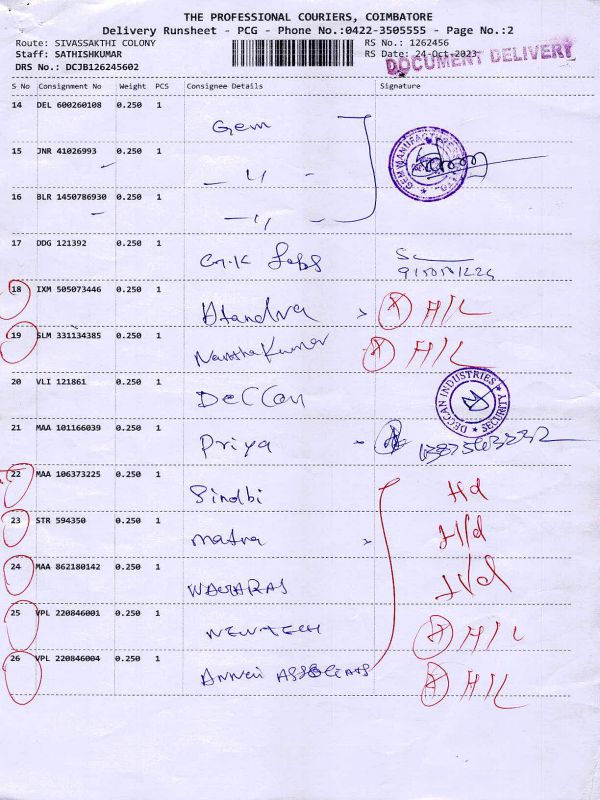 THE PROFESSIONAL COURIERS, COIMBATORE
Delivery Runsheet - PCG - Phone No.:0422-3505555 - Page No.:2
Route: SIVASSAKTHI COLONY RS No.: 1262456
Staff: SATHISHKUMAR RS Date: 24-Oct-2023
DOCUMENT DELIVERY
DRS No.: DCJB126245602
S No Consignment No Weight PCS Consignee Details Signature
14 DEL 600260108 0.250 1 Gem
GEM MANUFACT
15 JNR 41026993 0.250 1 — 11 —
16 BLR 1450786930 0.250 1 — 11 —
17 DDG 121392 0.250 1
18 IXM 505073446 0.250 1 H/L
19 SLM 331134385 0.250 1 H/L
20 VLI 121861 0.250 1 Deccan
DECCAN INDUSTRIES SECURITY
21 MAA 101166039 0.250 1 Priya
22 MAA 106373225 0.250 1 Sindbi Hd
23 STR 594350 0.250 1 matra H/d
24 MAA 862180142 0.250 1 H/d
25 VPL 220846001 0.250 1 NEWTECH H/L
26 VPL 220846004 0.250 1 H/L